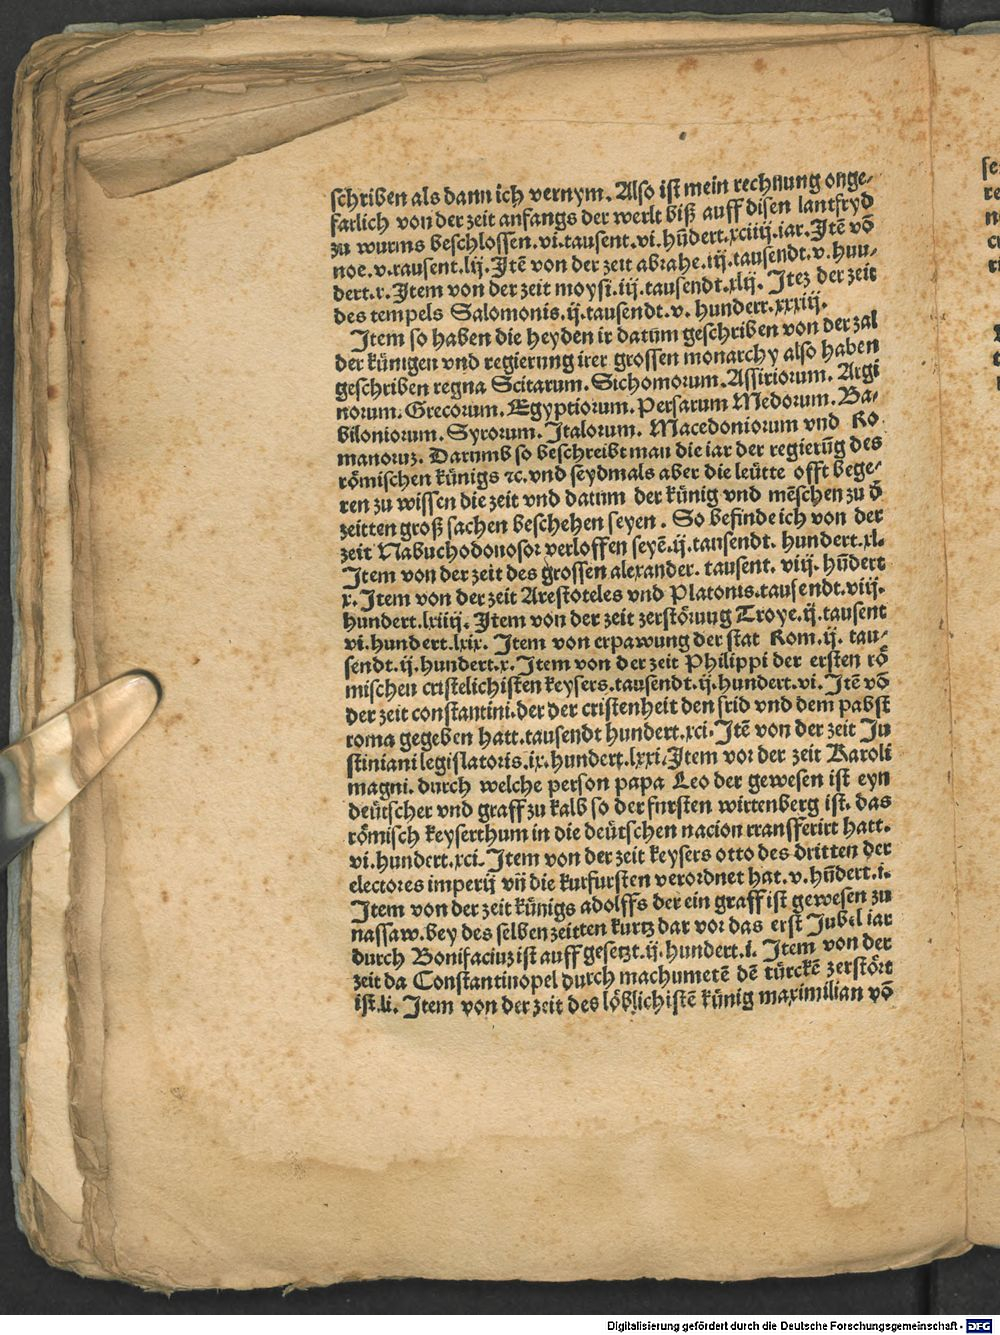 schriben als dann ich vernym. Also ist mein rechnung onge-
farlich von der zeit anfangs der werlt biß auff disen lantfryd
zu wurms beschlossen.vi.tausent.vi.hūdert.xciiij.iar.Itē vō
noe.v.tausent.lij.Itē von der zeit abrahe.iij.tausendt.v.hun-
dert.x.Item von der zeit moysi.iij.tausendt.xlij. Itez der zeit
des tempels Salomonis.ij.tausendt.v.hundert.xxxiij.
Item so haben die heyden ir datum geschriben von der zal
der künigen vnd regierung irer grossen monarchy also haben
geschriben regna Scitarum.Sichomorum.Assiriorum. Argi
norum.Grecorum.Egyptiorum.Persarum Medorum.Ba-
biloniorum.Syrorum.Italorum. Macedoniorum vnd Ro
manoruz. Darumb so beschreibt man die iar der regierūg des
römischen künigs ꝛc.vnd seydmals aber die leütte offt bege-
ren zu wissen die zeit vnd datum der künig vnd mēschen zu d̄
zeitten groß sachen beschehen seyen. So befinde ich von der
zeit Nabuchodonosor verloffen seyē.ij.tausendt. hundert.xl.
Item von der zeit des grossen alexander. tausent. viij. hūdert
x.Item von der zeit Arestoteles vnd Platonis.tausendt.viij.
hundert.lxiiij. Item von der zeit zerstörung Troye.ij.tausent
vi.hundert.lxix. Item von erpawung der stat Rom.ij. tau-
sendt.ij.hundert.x.Item von der zeit Philippi der ersten rö
mischen cristelichisten keysers.tausendt.ij.hundert.vi. Itē vō
der zeit constantini.der der cristenheit den frid vnd dem pabst
roma gegeben hatt.tausendt hundert.xci.Itē von der zeit Ju
stiniani legislatoris.ix.hundert.lxxi.Item vor der zeit Karoli
magni. durch welche person papa Leo der gewesen ist eyn
deütscher vnd graff zu kalb so der fursten wirtenberg ist. das
römisch keyserthum in die deütschen nacion transferirt hatt.
vi.hundert.xci.Item von der zeit keysers otto des dritten der
electores imperij vn̄ die kurfursten verordnet hat.v.hūdert.i.
Item von der zeit künigs adolffs der ein graff ist gewesen zu
nassaw.bey des selben zeitten kurtz dar vor das erst Jubel iar
durch Bonifaciuz ist auff gesetzt.ij.hundert.i. Item von der
zeit da Constantinopel durch machumetē dē türckē zerstört
ist.li. Item von der zeit des löblichistē künig maximilian vō
Digitalisierung gefördert durch die Deutsche Forschungsgemeinschaft - DFG